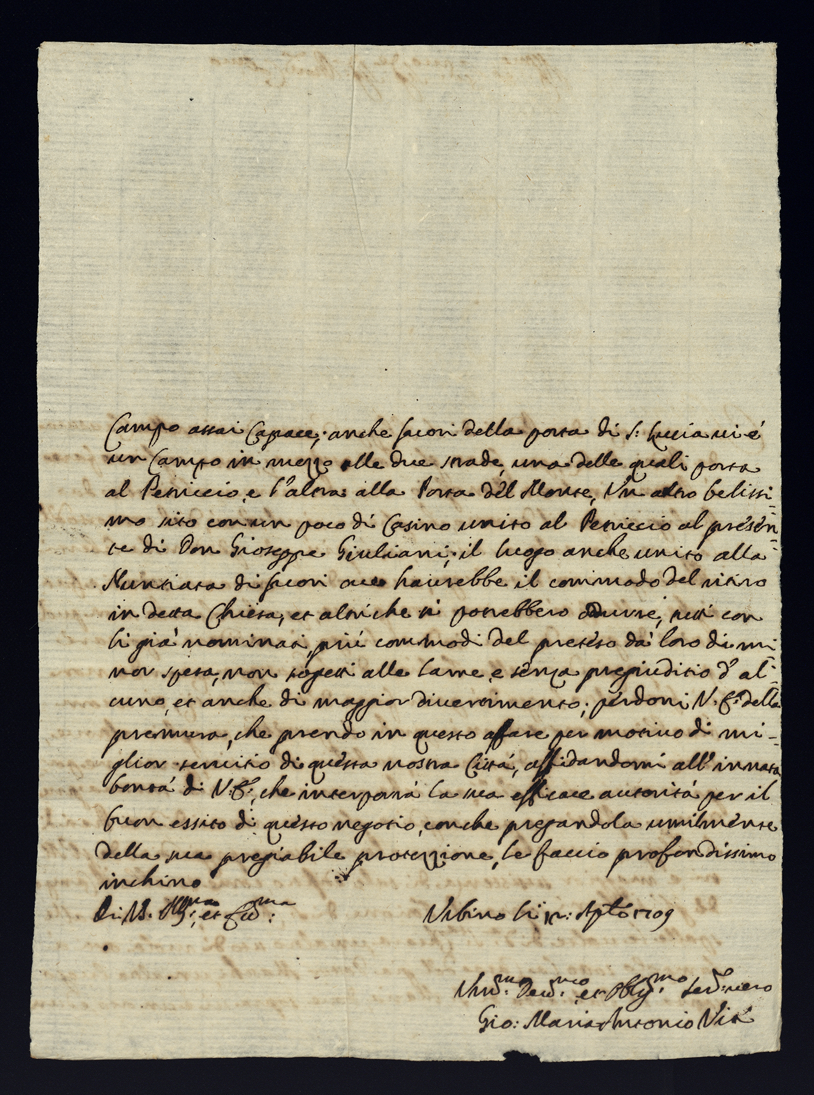 Campo assai Capace; anche fuori della porta di S: Lucia ui é
un Campo in mezzo alle due strade, una delle quali porta
al Petriccio, e l'altra alla Porta dél Monte, Un altro belissi-
mo sito con un poco di Casino unito al Petriccio al présén-
te di Don Gioseppe Giuliani; il luogo anche unito alla
Nuntiata di fuori oue haurebbe il commodo del ritiro
in detta Chiesa, et altri che si potrebbero addurre, tutti con
li giá nominati, piú commodi del preteso dá loro di mi-
nor spesa, non sogetti alle lame e senza pregiuditio d'al-
cuno, et anche di maggior diuertimento; perdoni V. E: della
premura, che prendo in questo affare per motiuo di mi-
glior seruitio di questa nostra Cittá, affidandomi all'innata
bontá di V. E:, che interporrá la sua efficace autoritá per il
buon essito di questo negotio, con che pregandola umilmente
della sua pregiabile protezzione, le faccio profondissimo
inchino
Di V. et
Urbino li 12: Aplē 1709
Deu:mo, et Obbl:mo Ser: uero
Gio: Maria Antonio